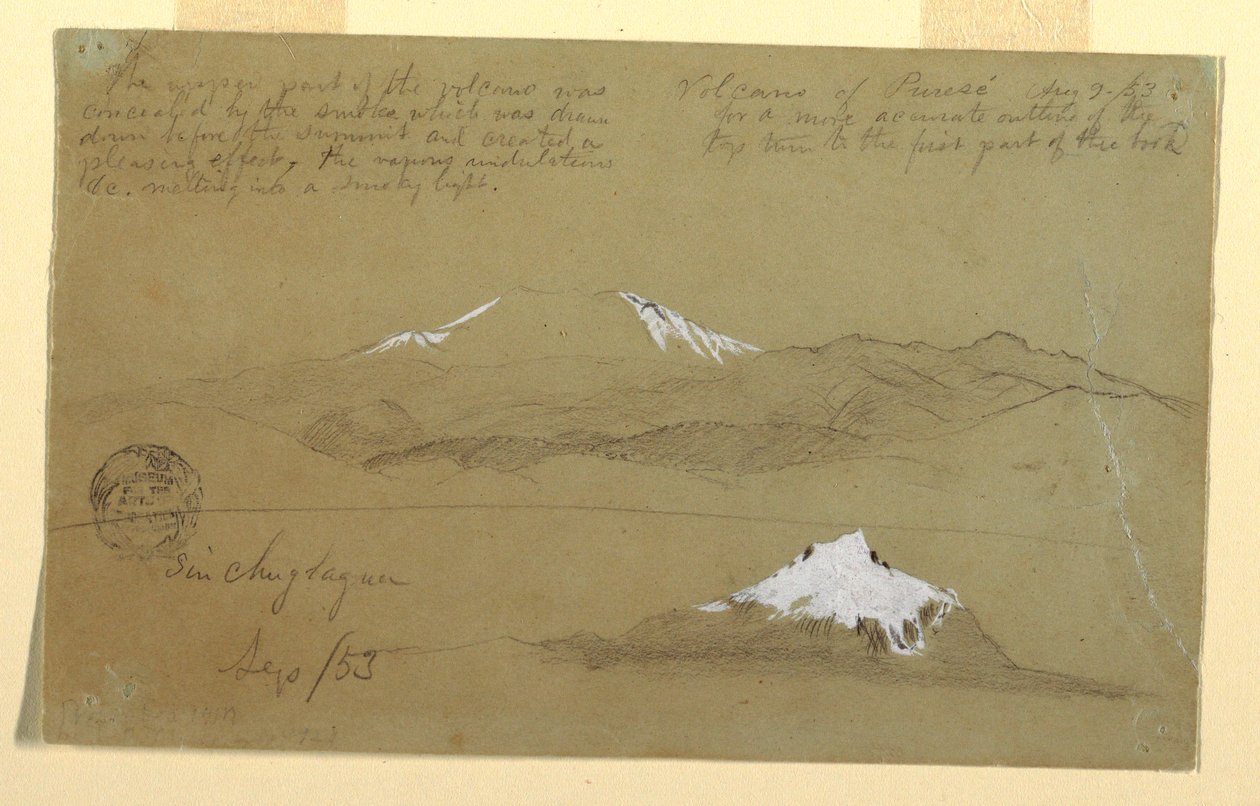 The upper part of the volcano was
concealed by the smoke which was drawn
down before the summit and created a
pleasing effect, the vapours undulations
&c. melting into a smoky light.
Volcano of Puresé Aug 9 /53
for a more accurate outline of the
top turn to the first part of the book
MUSEUM
FOR THE
ARTS
Sin Chuglagua
Sep /53